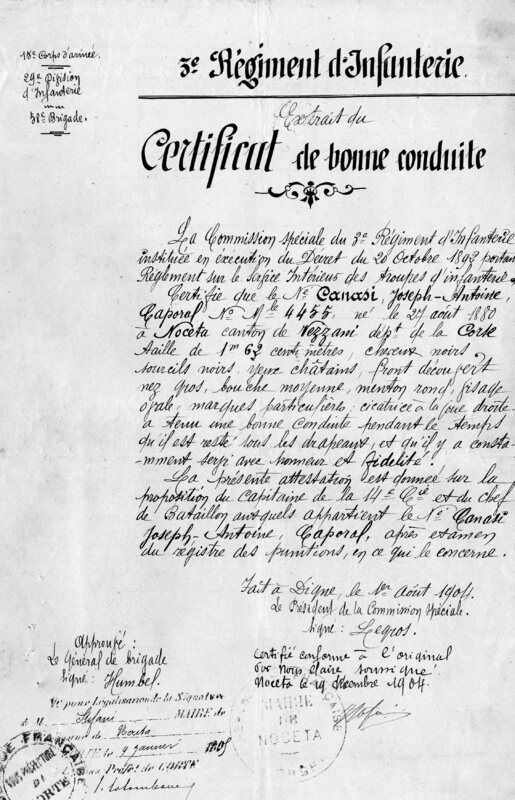 15e Corps d'armée.
29e Division
d'Infanterie
58e Brigade.
3e Régiment d'Infanterie.
Extrait du
Certificat de bonne conduite
La Commission spéciale du 3e Régiment d'Infanterie
instituée en exécution du Décret du 20 Octobre 1892 portant
Règlement sur le Service Intérieur des troupes d'infanterie
Certifie que le Né Canasi, Joseph-Antoine,
Caporal No Mle 4455, né le 27 août 1880
à Noceta canton de Vezzani dépt de la Corse
taille de 1m 62 centimètres, cheveux noirs
sourcils noirs, yeux châtains, front découvert
nez gros, bouche moyenne, menton rond, visage
ovale, marques particulières: cicatrice à la joue droite
a tenu une bonne conduite pendant le temps
qu'il est resté sous les drapeaux, et qu'il y a consta-
mment servi avec honneur et fidélité.
La présente attestation est donnée sur la
proposition du Capitaine de la 14e Cie et du chef
de Bataillon auxquels appartient le Né Canasi
Joseph-Antoine, Caporal, après examen
du registre des punitions, en ce qui le concerne.
Fait à Digne, le 1er Août 1904.
Le Président de la Commission Spéciale.
Signé: Legros.
Approuvé:
Le Général de brigade
Signé: Humbel.
Certifié conforme à l'original
par Nous Maire soussigné
Noceta le 19 décembre 1904.
Vu pour légalisation de la Signature
de M. Stefani MAIRE de
Noceta
LE 9 janvier 1905
CORTE
MAIRIE
DE
NOCETA
CORSE
FRANÇAISE